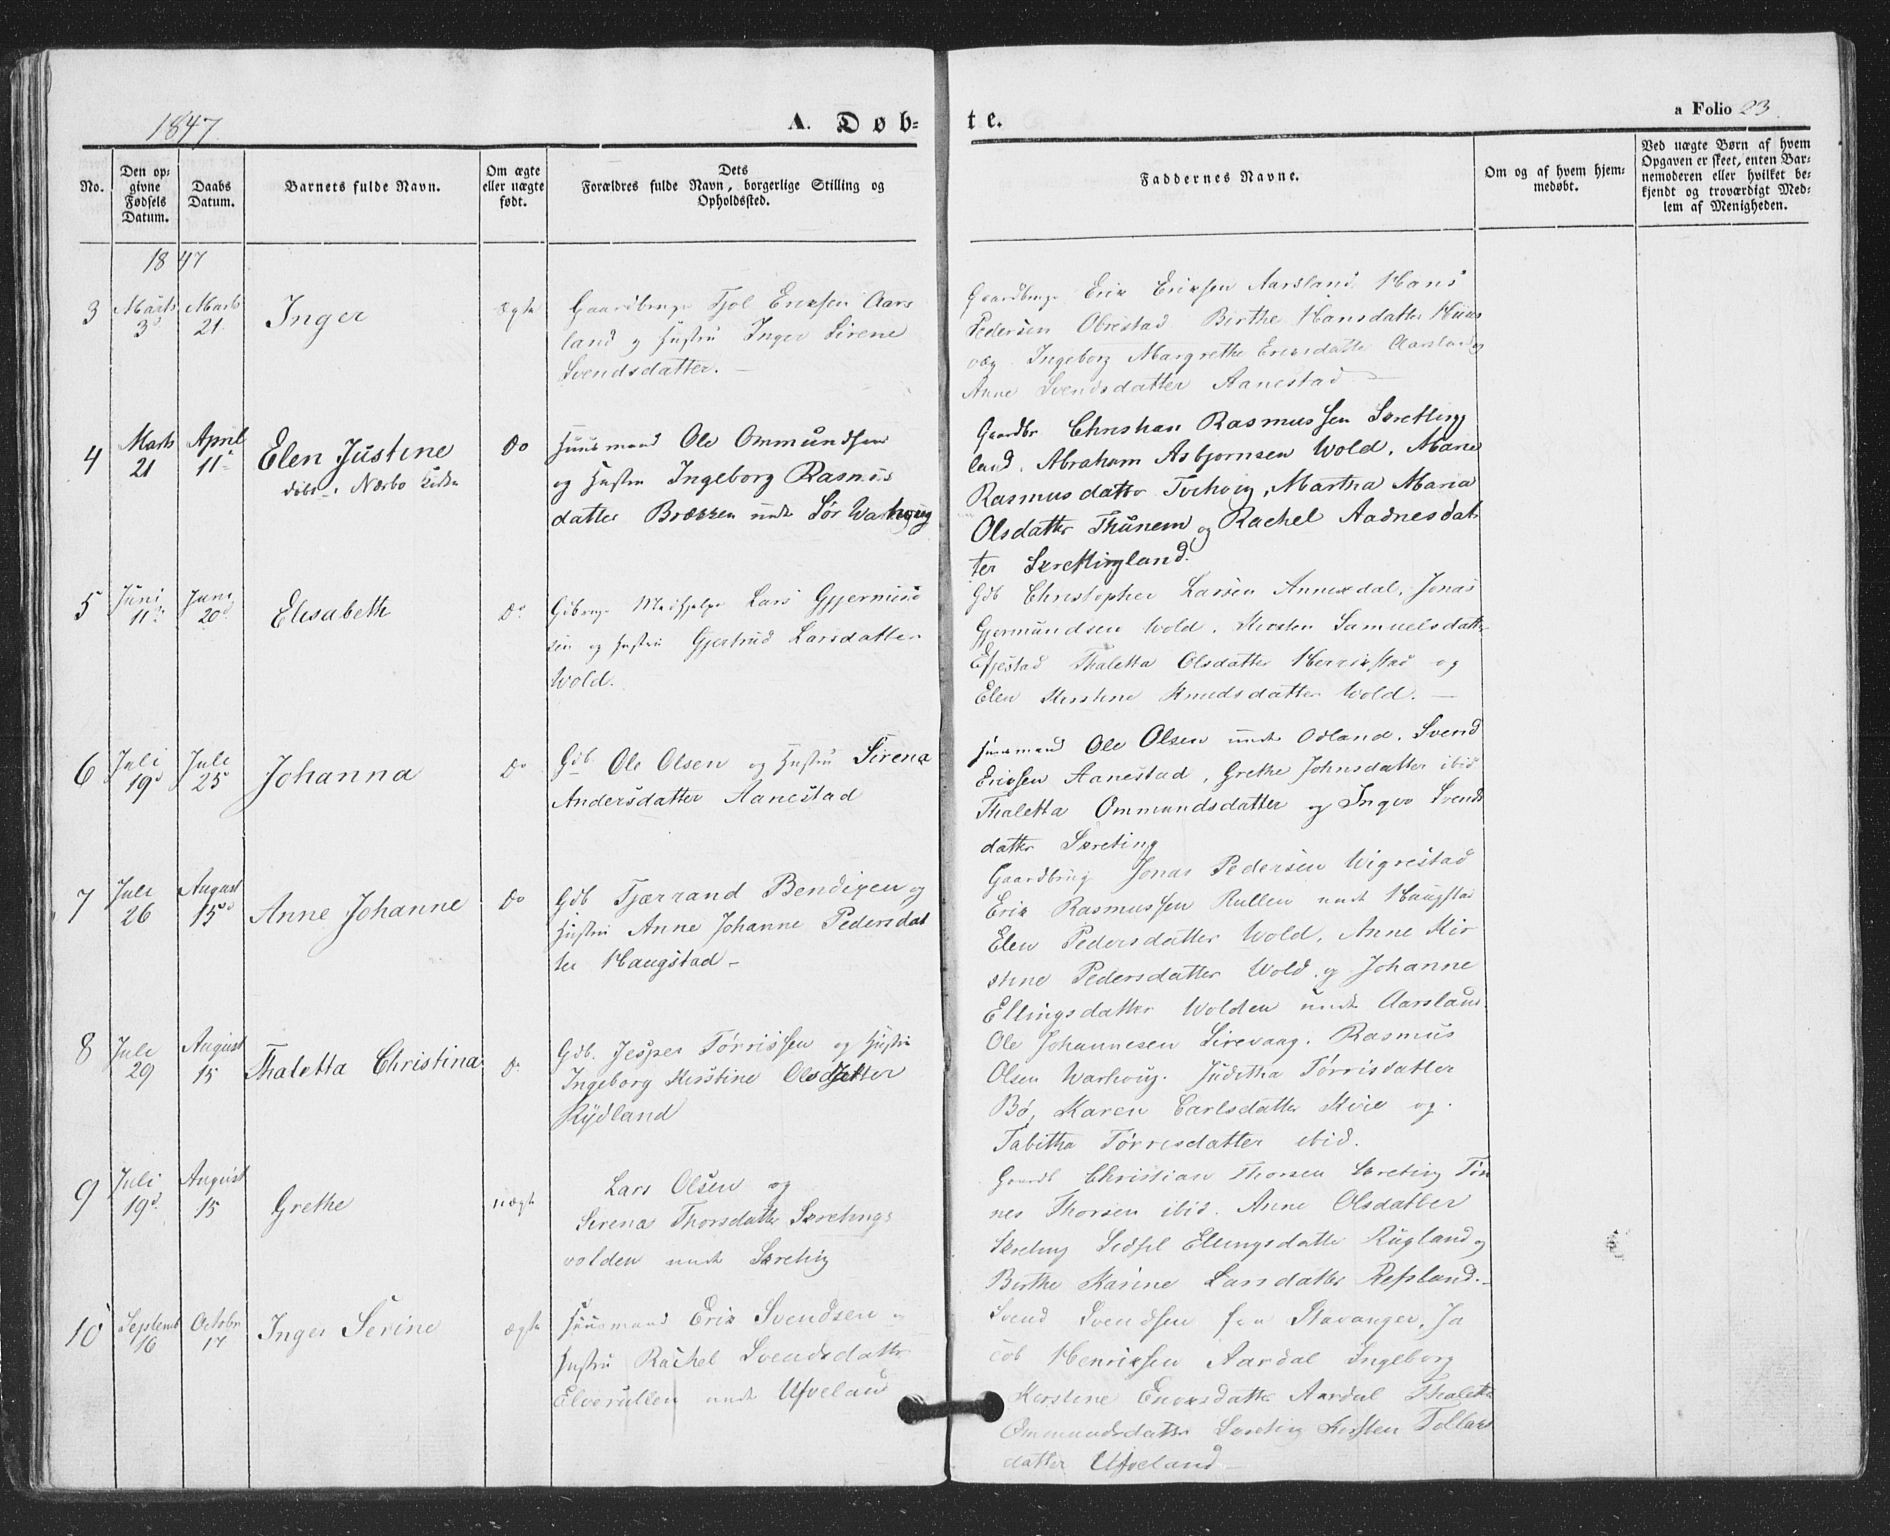 1847
A. Døb-
te.
a Folio 23.
No.
Den op-
givne
Fødsels
Datum.
Daabs
Datum.
Barnets fulde Navn.
Om ægte
eller uægte
født.
Dets
Forældres fulde Navn, borgerlige Stilling og
Opholdssted.
Faddernes Navne.
Om og af hvem hjem-
medøbt.
Ved uægte Børn af hvem
Opgaven er skeet, enten Bar-
nemoderen eller hvilket be-
kjendt og troværdigt Med-
lem af Menigheden.
1847
3 Marts 3d Marts 21 Inger ægte
Gaardbruge Tjøl Eriksen Aars
land og Hustru Inger Sirene
Svendsdatter.
Gaardbruge Erik Eriksen Aarsland Hans
Pedersen Obrestad Birthe Hansdatter Huus
væg Ingeborg Margrethe Eriksdatter Aarsland og
Anne Svendsdatter Aanestad
4 Marts 21 April 11te Elen Justine Do
døbt i Nærbo Kirke
Huusmand Ole Ommundsen
og Hustru Ingeborg Rasmus
datter Brækken unde Sør Warhoug
Gaardbr Christian Rasmussen Skretting
land, Abraham Asbjørnsen Wold, Marie
Rasmusdatter Tvihoug, Martha Maria
Olsdatter Thunem og Rachel Aadnesdat
ter Skrettingland.
5 Juni 11te Juni 20d Elisabeth Do
Gdbruge Medhjelper Lars Gjermund
sen og Hustru Gjertrud Larsdatter
Wold.
Gdb Christopher Larsen Annexdal, Jonas
Gjermundsen Wold, Kirsten Samuelsdatter
Efjestad Thaletta Olsdatter Herrikstad og
Elen Kirstine Knudsdatter Wold.
6 Juli 19d Juli 25 Johanna Do
Gdb Ole Olsen og Hustru Sirena
Andersdatter Aanestad
Huusmand Ole Olsen unde Odland, Svend
Eriksen Aanestad, Grethe Johnsdatter ibid
Thaletta Ommundsdatter og Inger Svends
datter Skreting
7 Juli 26 August 15de Anne Johanne Do
Gdb Tjærrand Bendixen og
Hustru Anne Johanne Pedersdat
ter Haugstad
Gaardbrug Jonas Pedersen Wigrestad
Erik Rasmussen Rullen unde Haugstad
Elen Pedersdatter Wold, Anne Kir
stine Pedersdatter Wold og Johanne
Ellingsdatter Wolden unde Aarsland
8 Juli 29 August 15 Thaletta Christina Do
Gdb. Jesper Tørrissen og Hustru
Ingeborg Kirstine Olsdatter
Rydland
Ole Johannesen Sirevaag, Rasmus
Olsen Warhoug, Juditha Tørrisdatter
Bø, Karen Carlsdatter Kvie og
Tabitha Tørrisdatter ibid.
9 Juli 19d August 15 Grethe uægte
Lars Olsen og
Sirena Thorsdatter Skretings
volden unde Skreting
Gaardb Christian Thorsen Skreting Tøn
nes Thorsen ibid. Anne Olsdatter
Skreting Sidsel Ellingsdatter Rugland og
Birthe Karine Larsdatter Refsland.
10 Septemb 16 Octobr 17 Inger Serine ægte
Huusmand Erik Svendsen og
Hustru Rachel Svendsdatter
Elverullen unde Ufveland
Svend Svendsen fra Stavanger, Ja
cob Henriksen Aardal Ingeborg
Kirstine Enoksdatter Aardal Thaletta
Ommundsdatter Skreting Kirsten Tollaks
datter Ufveland